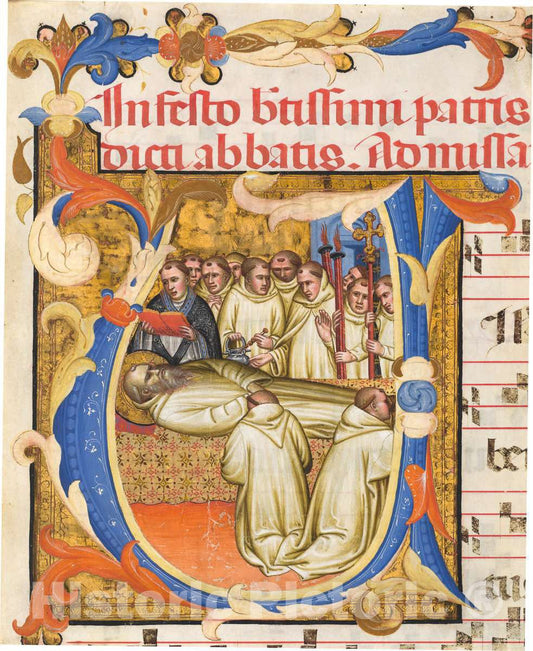 In festo btissimi patris
dicti abbatis. Ad missa
Historic Pictoric